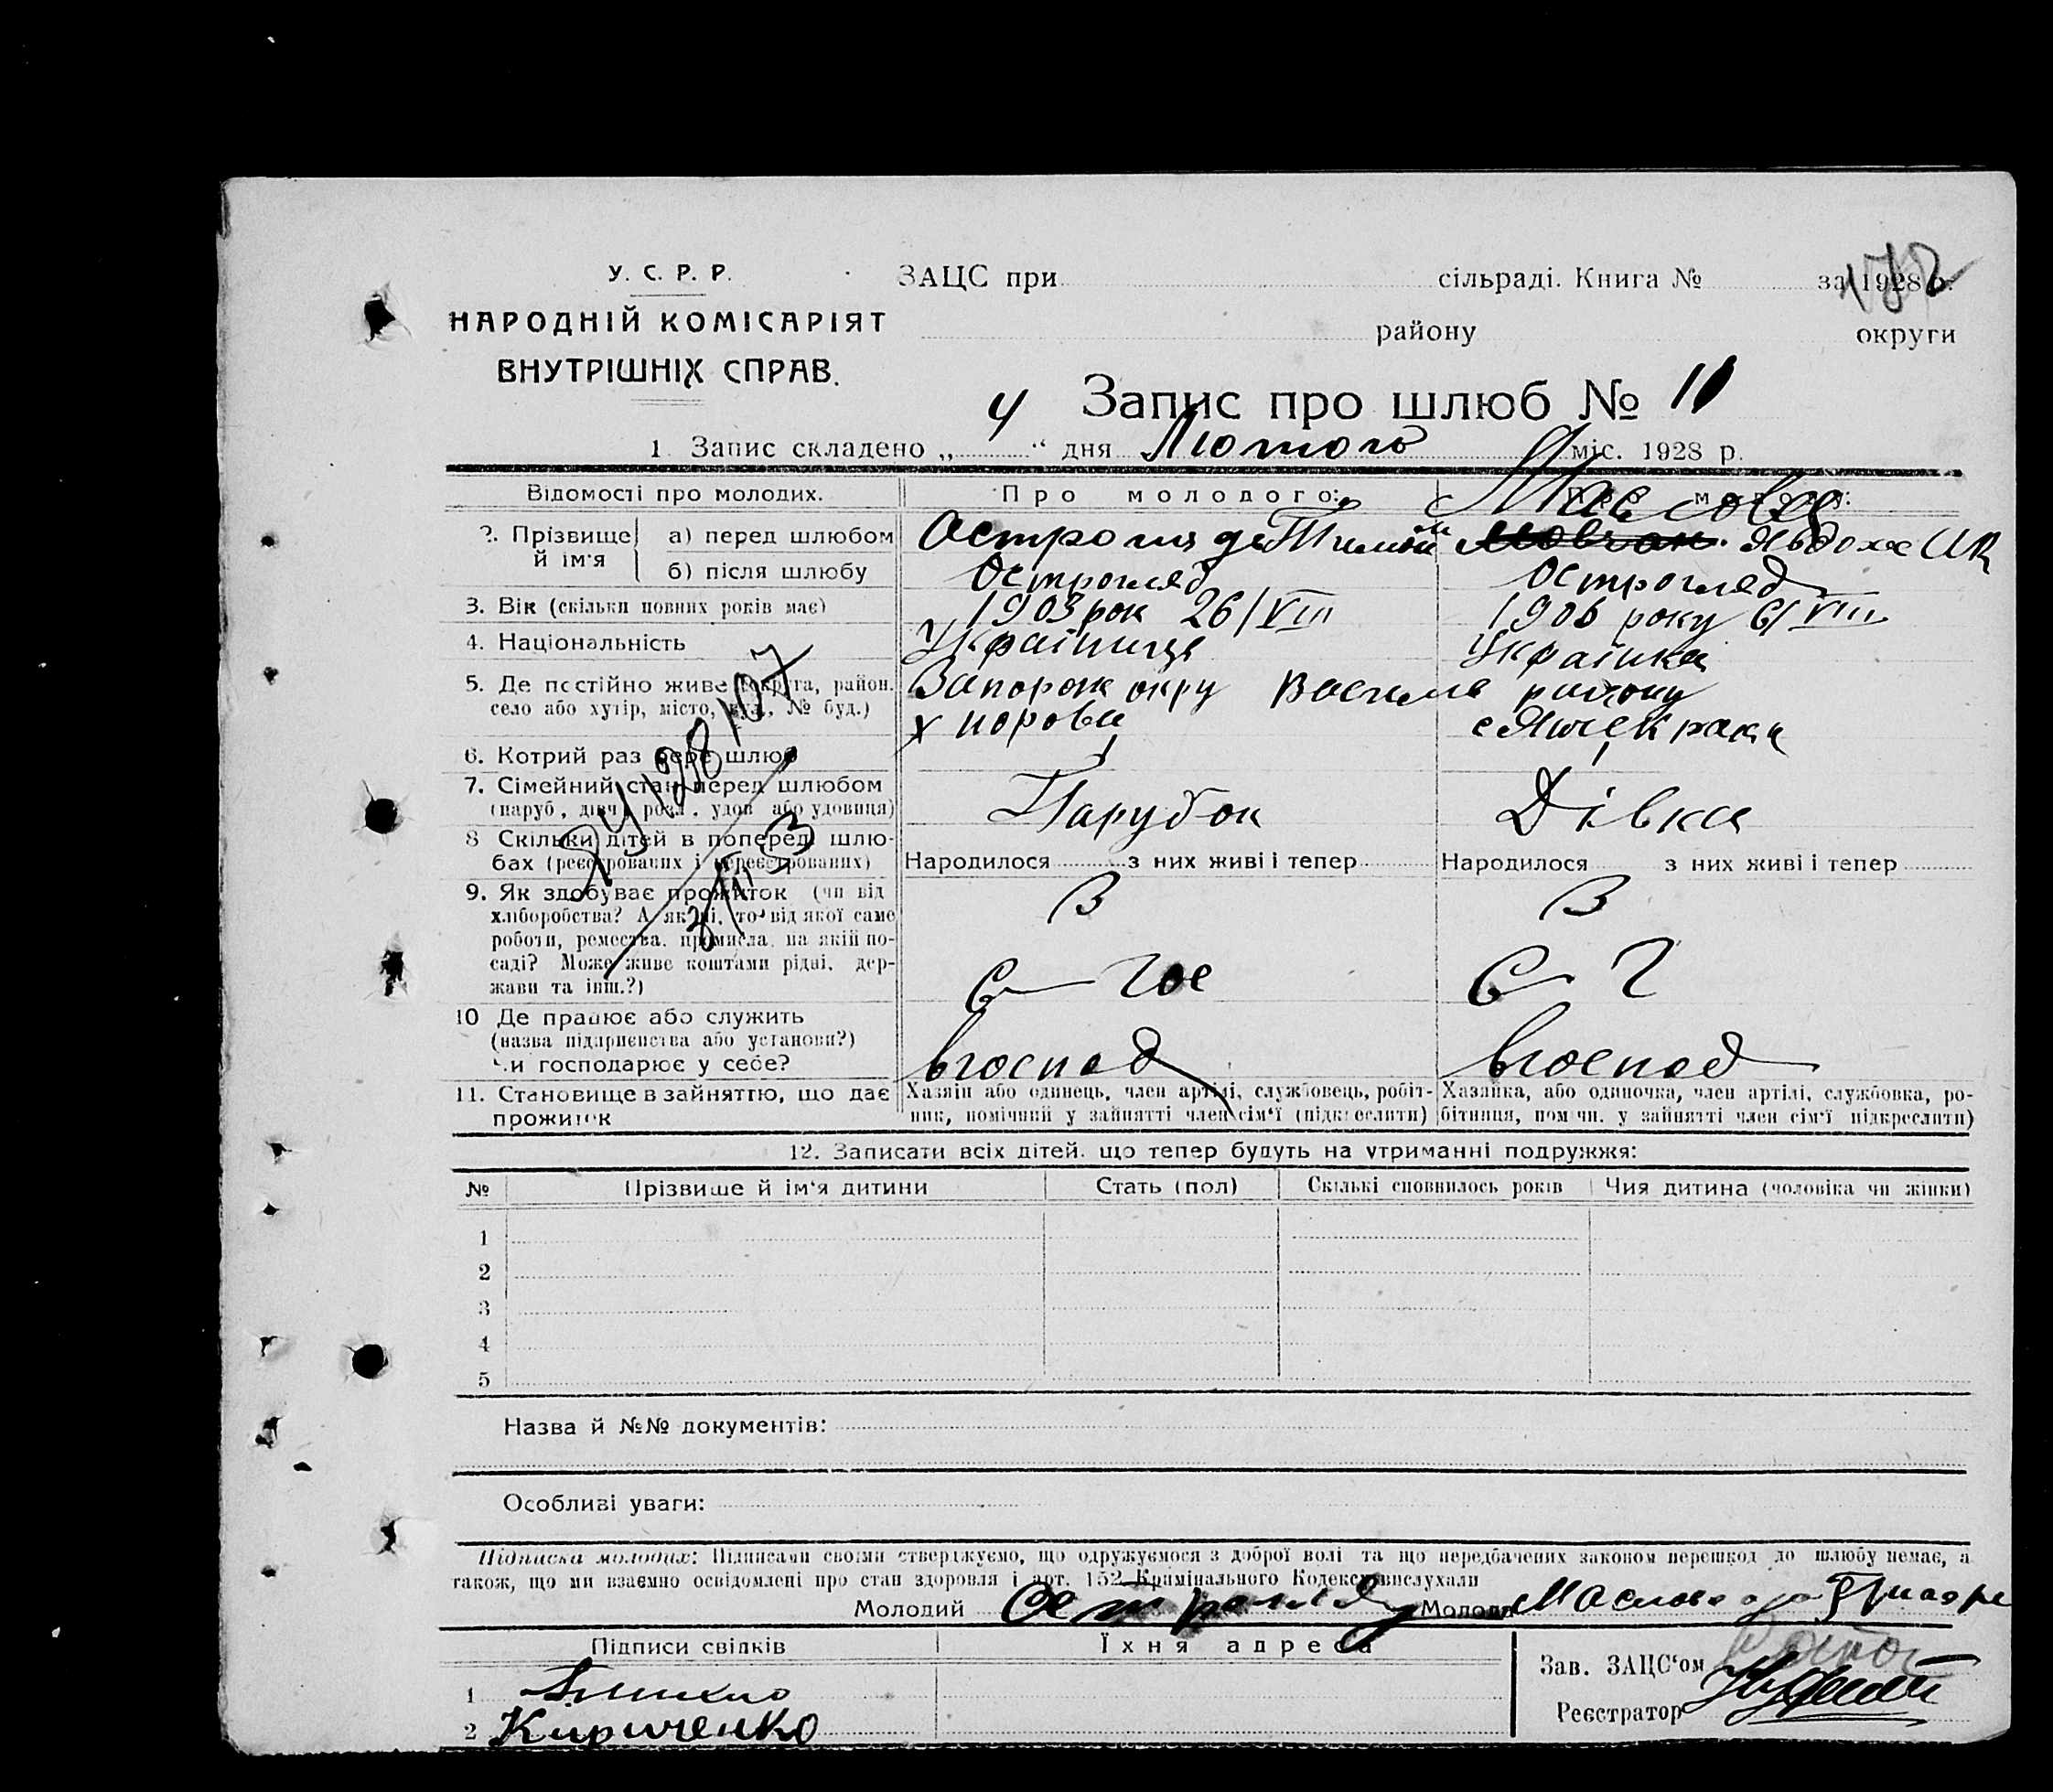 У. С. Р. Р.
НАРОДНІЙ КОМІСАРІЯТ
ВНУТРІШНІХ СПРАВ.
ЗАЦС при сільраді. Книга № за 1928 р.
району округи
Запис про шлюб № 11
1 Запис складено „ 4 “ дня Лютого міс. 1928 р.
Відомості про молодих. Про молодого: Про молоду:
2. Прізвище й ім'я а) перед шлюбом Остроглядъ Маслова Явдоха
б) після шлюбу Остроглед Остроглед
3. Вік (скільки повних років має) 1903 рок 26/VIII 1906 року 6/VIII
4. Національність Українця Українка
5. Де постійно живе (округа, район, село або хутір, місто, вул., № буд.) Запорож окру Василів району
х с Янчекрака
6. Котрий раз бере шлюб 1 1
7. Сімейний стан перед шлюбом Парубок Дівка
(паруб., дівч., розл., удов. або удовиця)
8 Скільки дітей в поперед шлюбах (реєстрованих і нереєстрованих) Народилося з них живі і тепер Народилося з них живі і тепер
9. Як здобуває прожиток (чи від хліборобства? А як ні, то від якої саме роботи, ремества, промисла, на якій посаді? Може живе коштами рідні, держави та інш.?)
10 Де працює або служить
(назва підприємства або установи?)
Чи господарює у себе? вгоспод вгоспод
11. Становище в зайняттю, що дає прожиток Хазяїн або одинець, член артілі, службовець, робітник, помічний у зайнятті член сім'ї (підкреслити) Хазяйка, або одиночка, член артілі, службовка, робітниця, пом чн. у зайнятті член сім'ї підкреслити)
12. Записати всіх дітей, що тепер будуть на утриманні подружжя:
№ Прізвише й ім'я дитини Стать (пол) Скількі сповнилось років Чия дитина (чоловіка чи жінки)
1
2
3
4
5
Назва й №№ документів:
Особливі уваги:
Підписка молодих: Підписами своїми стверджуємо, що одружуємося з доброї волі та що передбачених законом перешкод до шлюбу немає, а
також, що ми взаємно освідомлені про стан здоровля і арт. 152 Кримінального Кодексу вислухали
Молодий Молода
Підписи свідків Їхня адреса
Зав. ЗАЦС'ом
1
Реєстратор
2 Кириченко